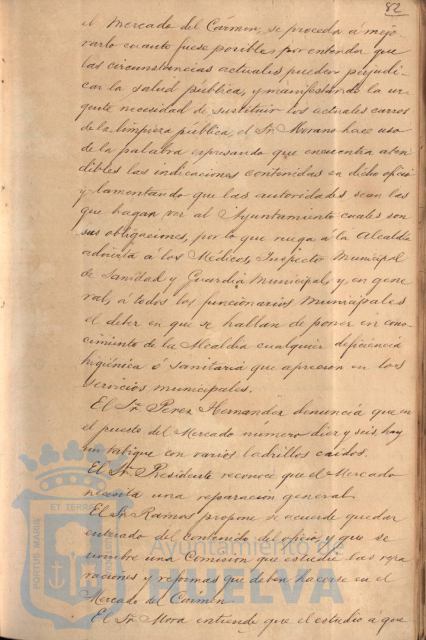 82
el Mercado del Cármen, se proceda á mejo
rarlo cuanto fuese posible, por entender que
las circunstancias actuales pueden perjudi
car la salud pública, y manifestando la ur
gente necesidad de sustituir los actuales carros
de la limpieza pública, el Sr. Morano hace uso
de la palabra expresando que encuentra aten
dibles las indicaciones contenidas en dicho oficio
y lamentando que las autoridades sean las
que hagan ver al Ayuntamiento cuales son
sus obligaciones, por lo que ruega á la Alcaldía
advierta á los Médicos, Inspector Municipal
de Sanidad y Guardia Municipal, y en gene
ral, á todos los funcionarios municipales
el deber en que se hallan de poner en cono
cimiento de la Alcaldía cualquier deficiencia
higiénica ó sanitaria que aprecien en los
servicios municipales.
El Sr. Perez Hernandez denuncia que en
el puesto del Mercado número diez y seis, hay
un tabique con varios ladrillos caidos.
El Sr. Presidente reconoce que el Mercado
necesita una reparación general.
El Sr. Ramos propone se acuerde quedar
enterado del contenido del oficio, y que se
nombre una Comisión que estudie las repa
raciones y reformas que deben hacerse en el
Mercado del Cármen.
El Sr. Mora entiende que el estudio á que
PORTUS MARIS ET TERRAE
Ayuntamiento de
HUELVA